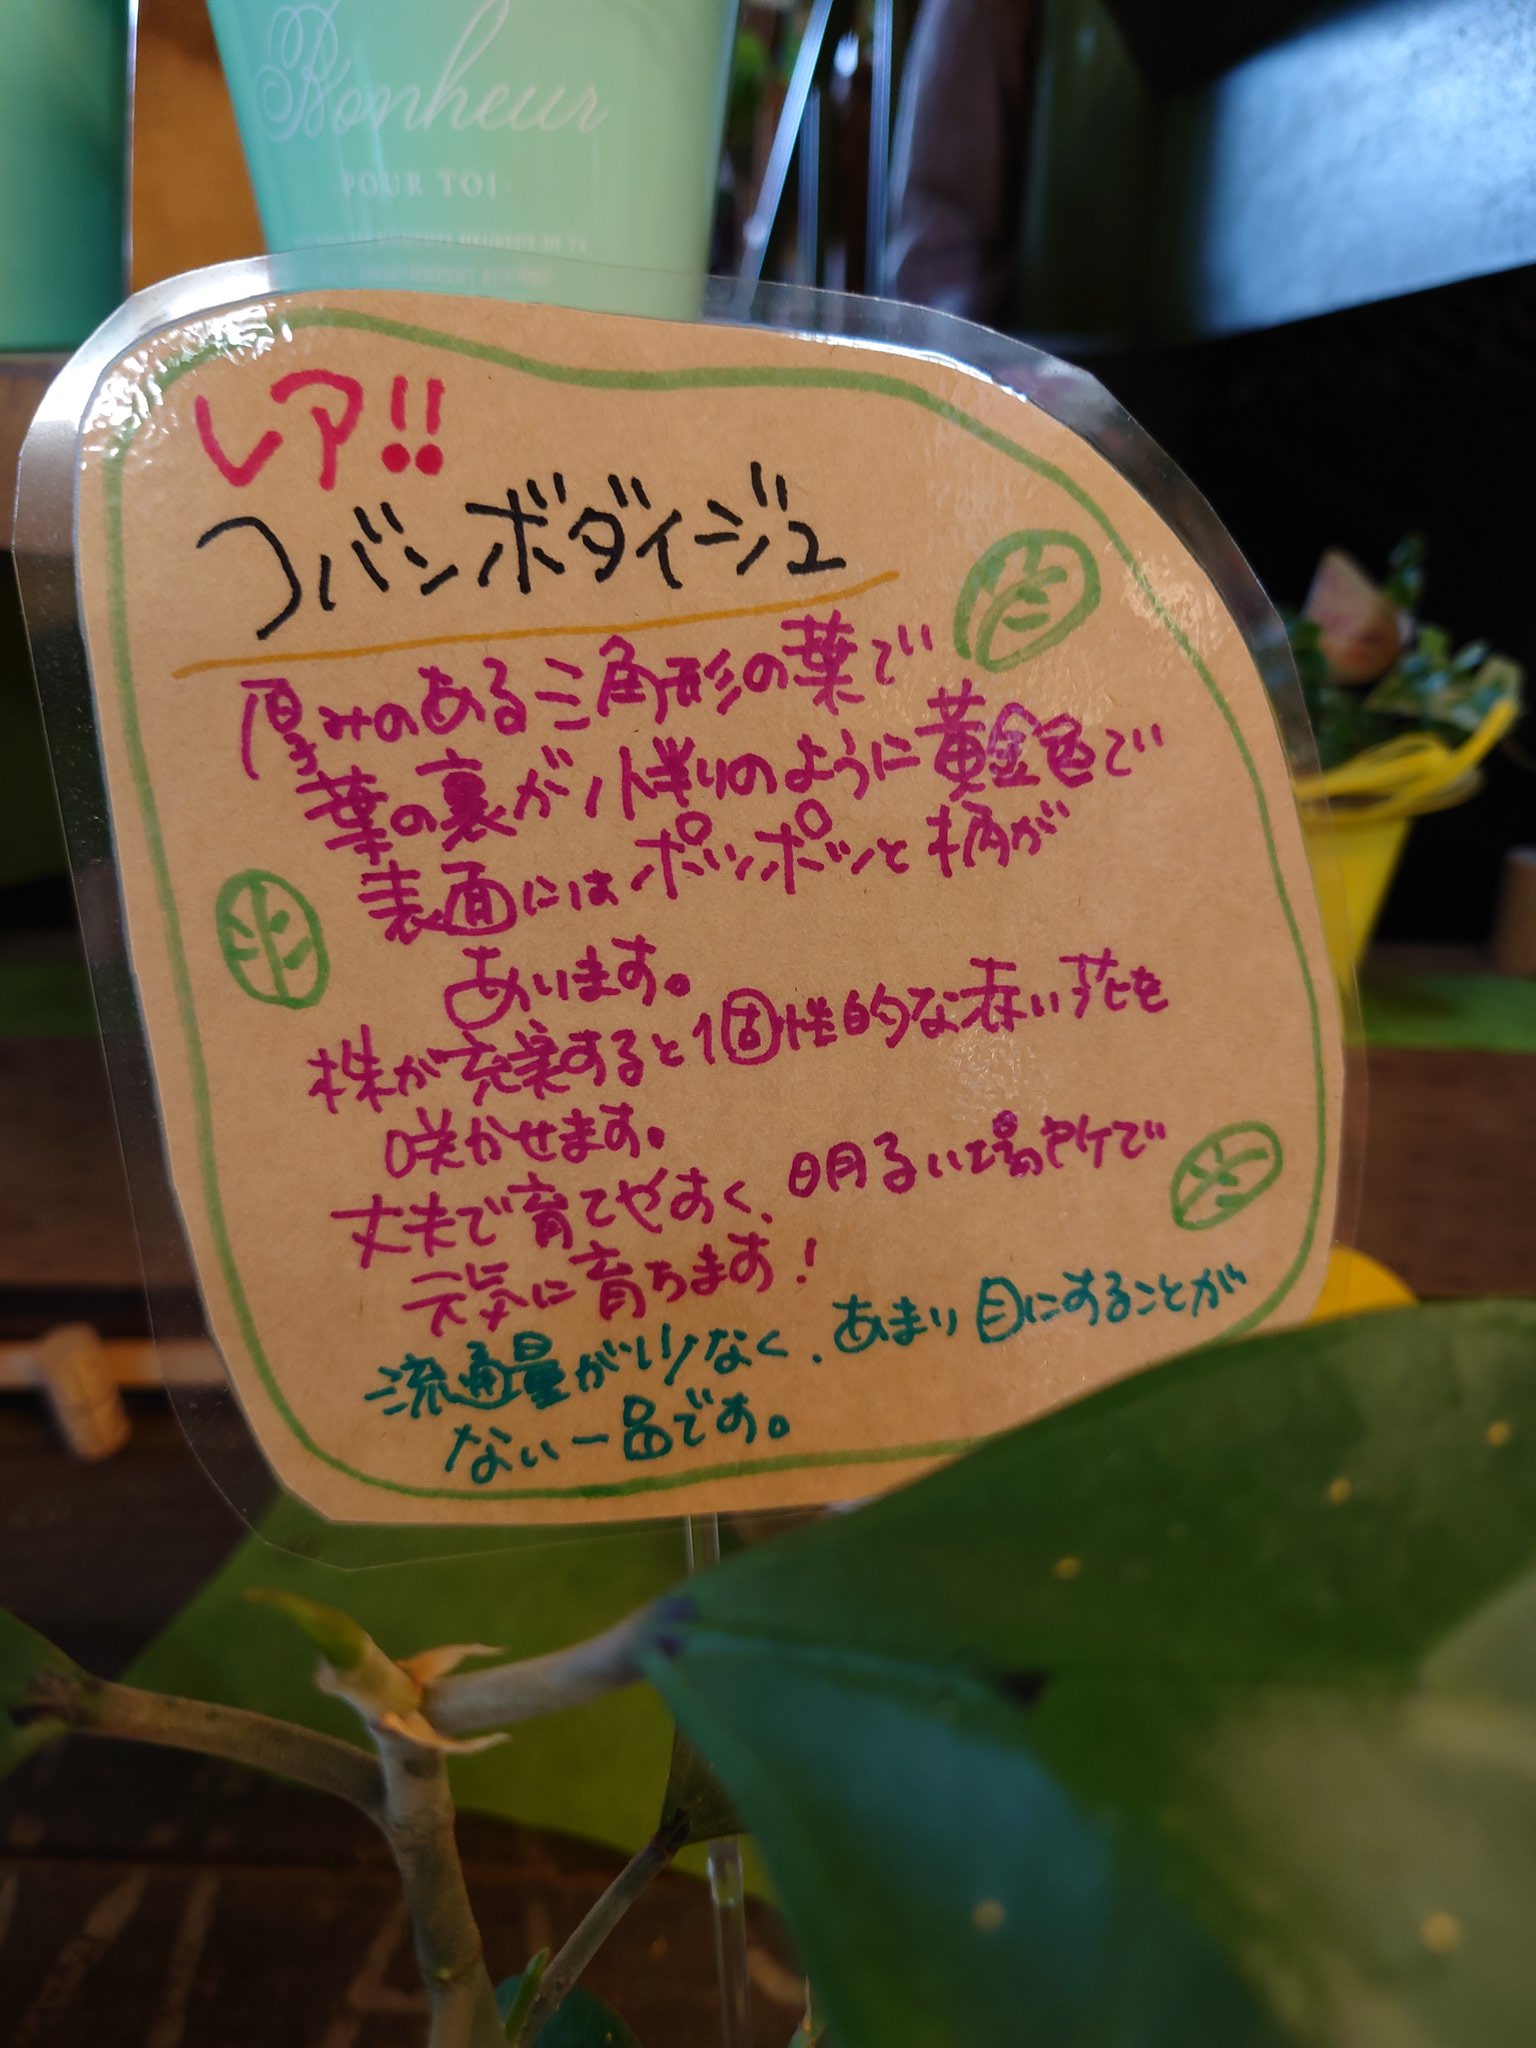 Bonheur
POUR TOI
レア!!
コバンボダイジュ
厚みのある三角形の葉で
葉の裏が小判のように黄金色で
表面にはポツポツと柄が
あります。
株が充実すると個性的な赤い花を
咲かせます。
丈夫で育てやすく、明るい場所で
元気に育ちます!
流通量が少なく、あまり目にすることが
ない一品です。